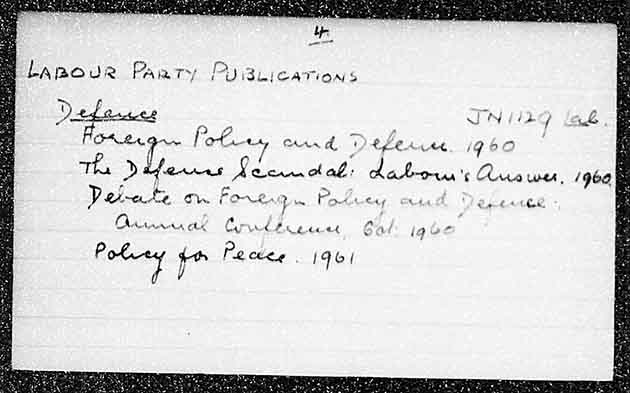 4.
LABOUR PARTY PUBLICATIONS
Defence JN1129 Lab.
Foreign Policy and Defence. 1960
The Defence Scandal: Labour's Answer. 1960
Debate on Foreign Policy and Defence:
Annual Conference, Oct. 1960
Policy for Peace. 1961